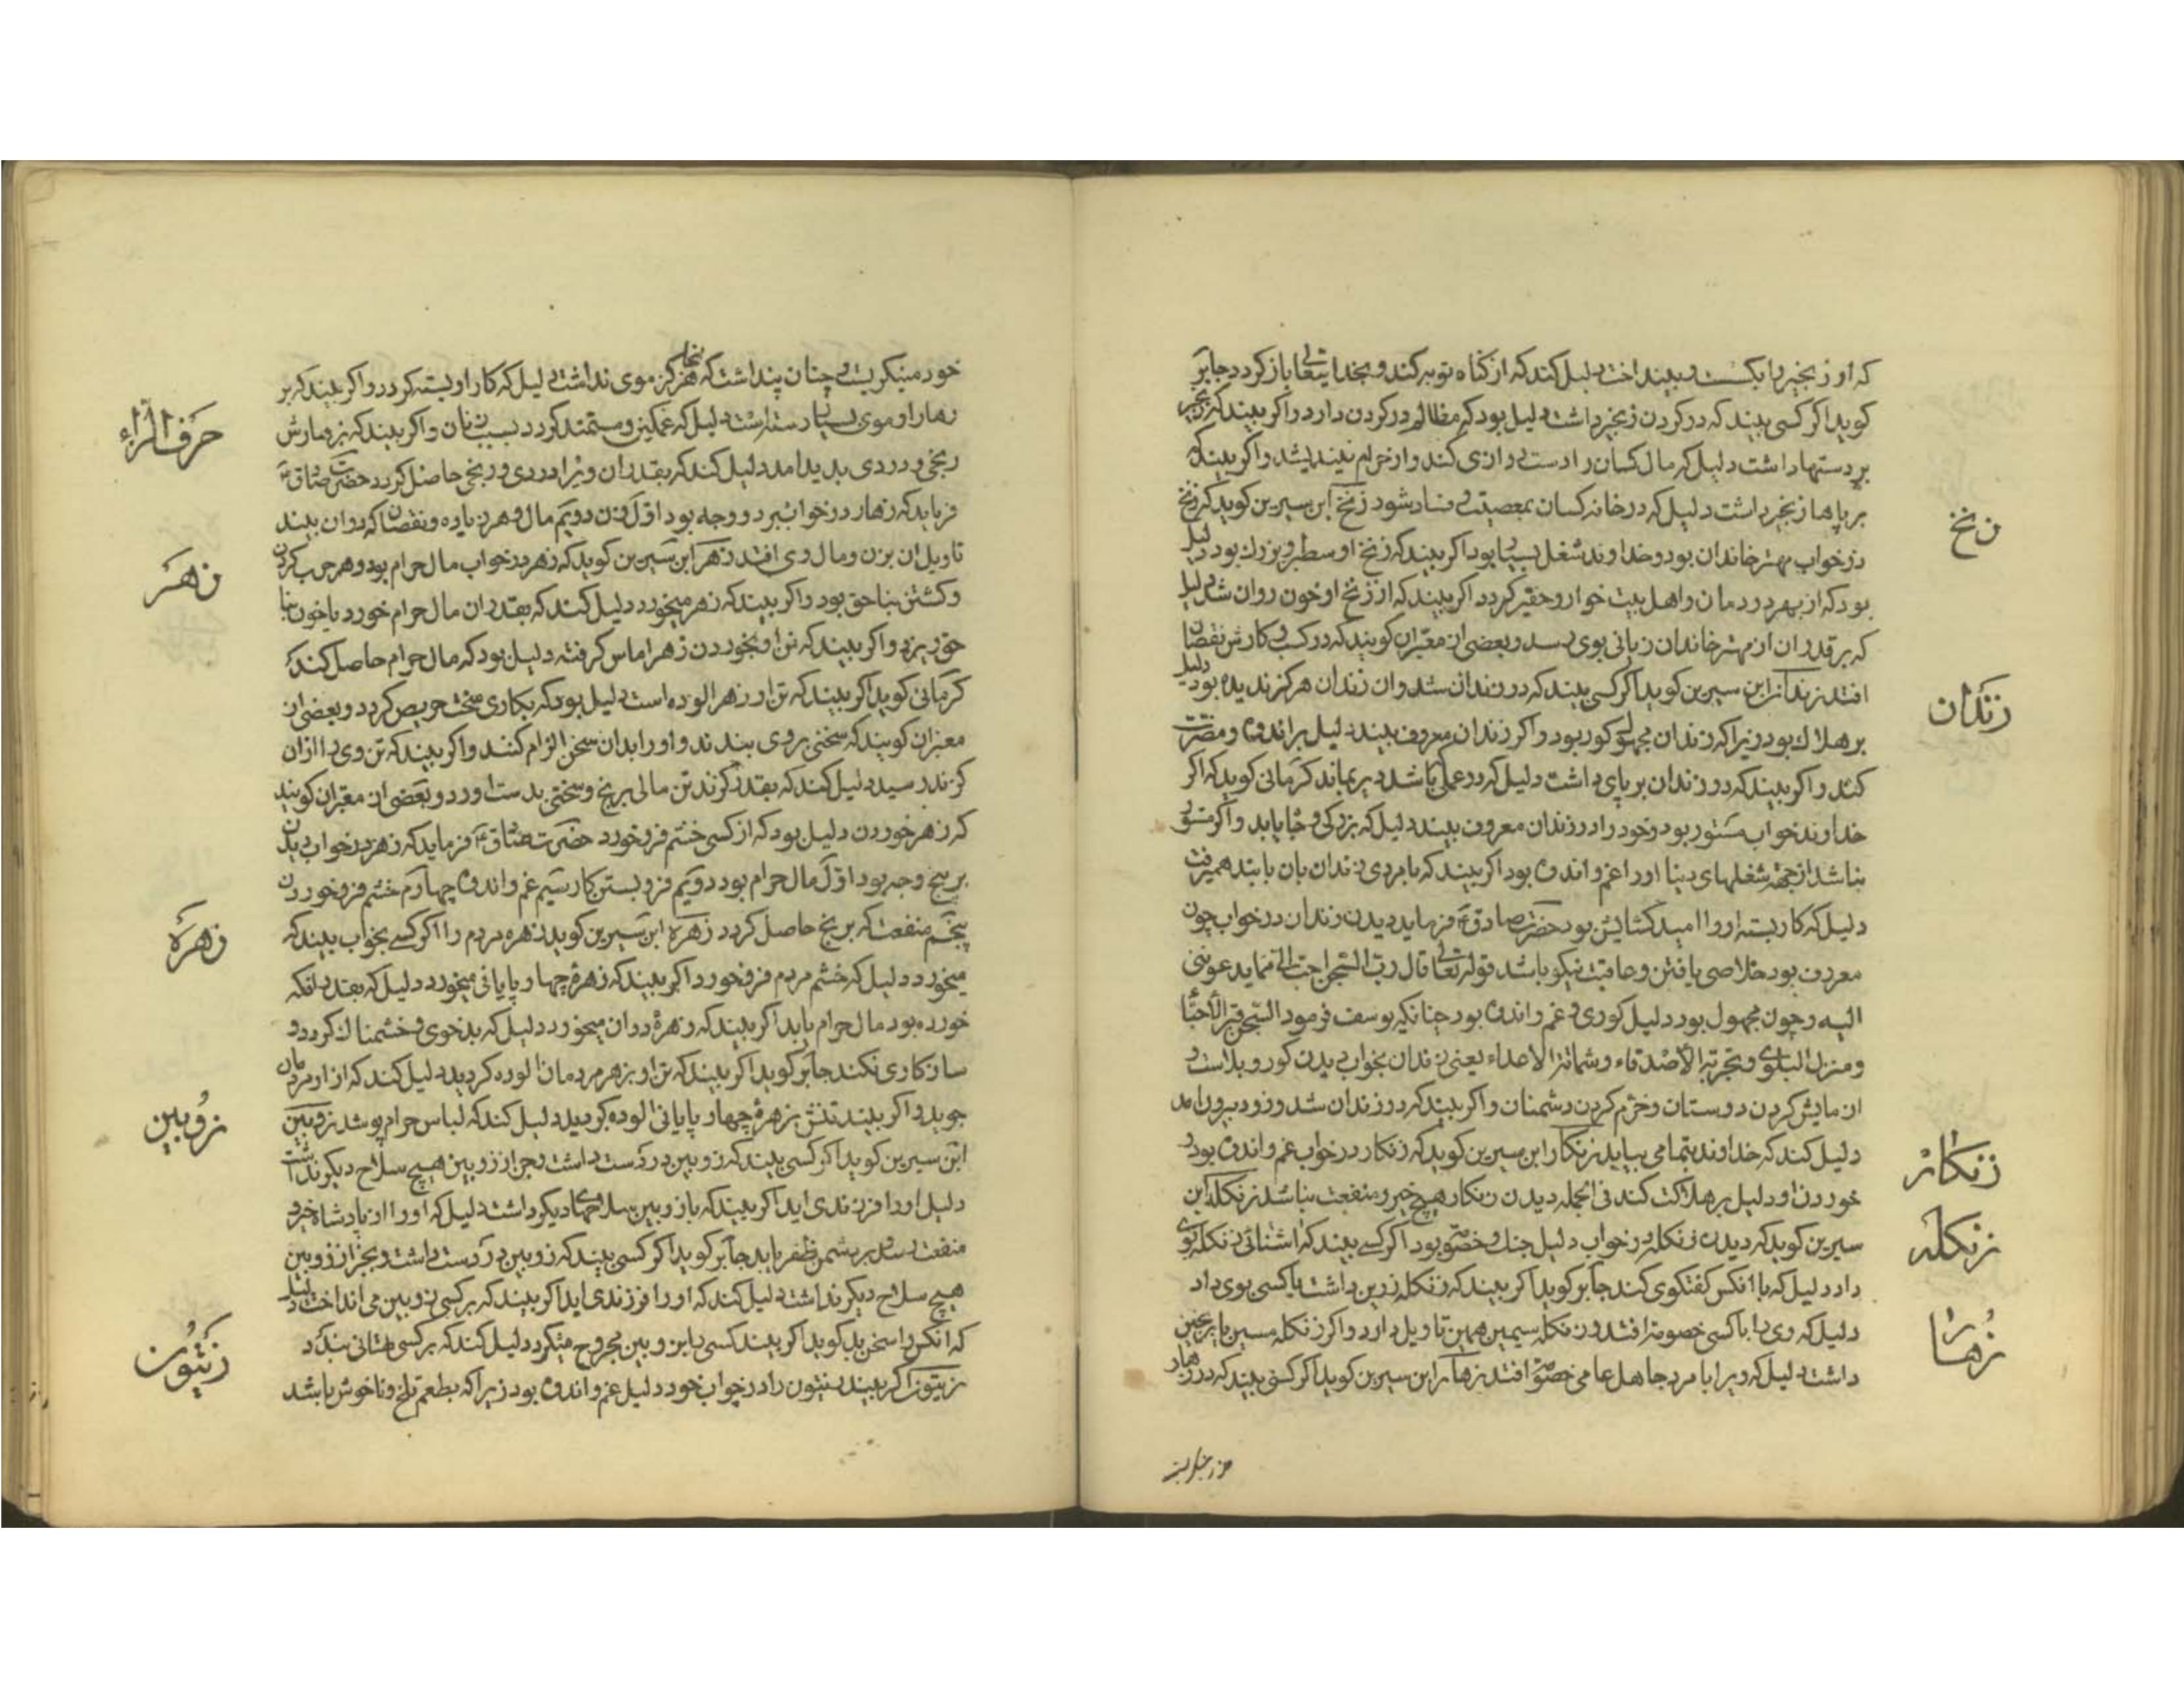 که او زنجیر را بکسست و بینداخت دلیل کند که از کناه توبه کند و بخدایتعالی باز کردد جابر
کوید اکر کسی بیند که در کردن زنجیر داشت دلیل بود که مظالم در کردن دارد و اکر بیند که زنجیر
بر دستها داشت دلیل که مال کسان را دست درازی کند و از حرام نیندیشد و اکر بیند که
بر پاها زنجیر داشت دلیل که در خانه کسان بمعصیت و فساد شود زنخ ابن سیرین کوید که زنخ
زنخ
در خواب مهتر خاندان بود و خداوند شغل بسیار بود اکر بیند که زنخ او سطبر و بزرك بود دلیل
بود که از بهر دردمان و اهل بیت خوار و حقیر کردد اکر بیند که از زنخ او خون روان شد دلیل
که بر قدر ان از مهتر خاندان زیانی بوی رسد و بعضی از معبران کویند که در کسب و کارش نقصان
افتد زندان ابن سیرین کوید اکر کسی بیند که در زندان شد و ان زندان هرکز ندیده بود دلیل
زندان
بر هلاك بود زیرا که زندان مجهول کور بود و اکر زندان معروف بیند دلیل بر اندوه و مضرت
کند و اکر بیند که در زندان بر پای داشت دلیل که در عملی باشد دیر بماند کرمانی کوید که اکر
خداوند خواب مستور بود و خود را در زندان معروف بیند دلیل که بزرکی و جاه یابد و اکر مستور
نباشد از جهة شغلهای دینا او را غم و اندوه بود اکر بیند که با مردی زندان بان بابند همیرفت
دلیل که کار بسته او را امید کشایش بود حضرت صادقع فرماید دیدن زندان در خواب چون
معروف بود خلاصی یافتن و عاقبت نیکو باشد قوله تعالی قال رب السجن احب الی مما یدعوننی
الیه و چون مجهول بود دلیل کوری و غم و اندوه بود چنانکه یوسف فرمود السجن قبر الاحیاء
و منزل البلوی و تجربة الاصدقاء و شماتة الاعداء یعنی زندان بخواب دیدن کور و بلاست و
ازمایش کردن دوستان و خرم کردن دشمنان و اکر بیند که در زندان شد و زود بیرون امد
دلیل کند که خداوند بتمامی بیاید زنکار ابن سیرین کوید که زنکار در خواب غم و اندوه بود و
زنکار
خوردن او دلیل بر هلاکت کند فی الجمله دیدن زنکار هیچ خیر و منفعت نباشد زنکله ابن
سیرین کوید که دیدن زنکله در خواب دلیل جنك و خصومت بود اکر کسی بیند که اشنائی زنکله بوی
زنکله
داد دلیل که با انکس کفتکوی کند جابر کوید اکر بیند که زنکله زرین داشت یا کسی بوی داد
دلیل که وی را با کسی خصومة افتد و زنکله سیمین همین تاویل دارد و اکر زنکله مسین یا برنجین
زهار
داشت دلیل که ویرا با مرد جاهل عامی خصومت افتد زهار ابن سیرین کوید اکر کسی بیند که در زهار
خود مینکریست و چنان پنداشت که انجا هرکز موی نداشت دلیل که کار او بسته کردد و اکر بیند که بر
زهار او موی بسیار رسته است دلیل که غمکین و مستمند کردد بسبب زنان و اکر بیند که بر زهارش
رنجی و دردی پدید امد دلیل کند که بقدر ان ویرا دردی و رنجی حاصل کردد حضرت صادقع
فرماید که زهار در خواب بر دو وجه بود اول زن دویم مال و هر زیاده و نقصان که در ان بیند
تاویل ان بزن و مال وی افتد زهر ابن سیرین کوید که زهر در خواب مال حرام بود و هم حرب کردن
زهر
و کشتن بناحق بود و اکر بیند که زهر میخورد دلیل کند که بقدر ان مال حرام خورد یا خون بنا
حق ریزد و اکر بیند که تن او بخوردن زهر اماس کرفته دلیل بود که مال حرام حاصل کند
کرمانی کوید اکر بیند که تن او زهر الوده است دلیل بود که بکاری سخت حریص کردد و بعضی از
معبران کویند که سخنی بر وی بندند و او را بدان سخن الزام کنند و اکر بیند که تن وی را ازان
کزند رسید دلیل کند که بقدر کزند تن مالی برنج و سختی بدست اورد و بعضی از معبران کویند
که زهر خوردن دلیل بود که از کسی خشم فرو خورد حضرت صادقع فرماید که زهر در خواب دیدن
بر پنج وجه بود اول مال حرام بود دویم فرو بستن کار سیم غم و اندوه چهارم خشم فرو خوردن
پنجم منفعت که برنج حاصل کردد زهره ابن سیرین کوید زهره مردم را اکر کسی بخواب بیند که
زهره
میخورد دلیل که خشم مردم فرو خورد اکر بیند که زهرهٔ چهار پایانی میخورد دلیل که بقدر انکه
خورده بود مال حرام یابد اکر بیند که زهرهٔ ددان میخورد دلیل که بدخوی و خشمناك کردد و
سازکاری نکند جابر کوید اکر بیند که تن او بزهر مردمان الوده کردید دلیل کند که ازار مردمان
جوید و اکر بیند تنش بزهرهٔ چهار پایانی الوده کردید دلیل کند که لباس حرام پوشد زوبین
زوبین
ابن سیرین کوید اکر کسی بیند که زوبین در دست داشت و جز از زوبین هیچ سلاح دیکر نداشت
دلیل او را فرزندی اید اکر بیند که با زوبین سلاحهای دیکر داشت دلیل که او را از پادشاه خیر و
منفعت رسد و بر دشمن ظفر یابد جابر کوید اکر کسی بیند که زوبین در دست داشت و بجز از زوبین
هیچ سلاح دیکر نداشت دلیل کند که او را فرزندی اید اکر بیند که بر کسی زوبین می انداخت دلیل
که انکس را سخن بد کوید اکر بیند کسی را بزوبین مجروح میکرد دلیل کند که بر کسی بهتانی بندد
زیتون اکر بیند زیتون را در خواب خورد دلیل غم و اندوه بود زیرا که بطعم تلخ و ناخوش باشد
زیتون
حرف الزاء